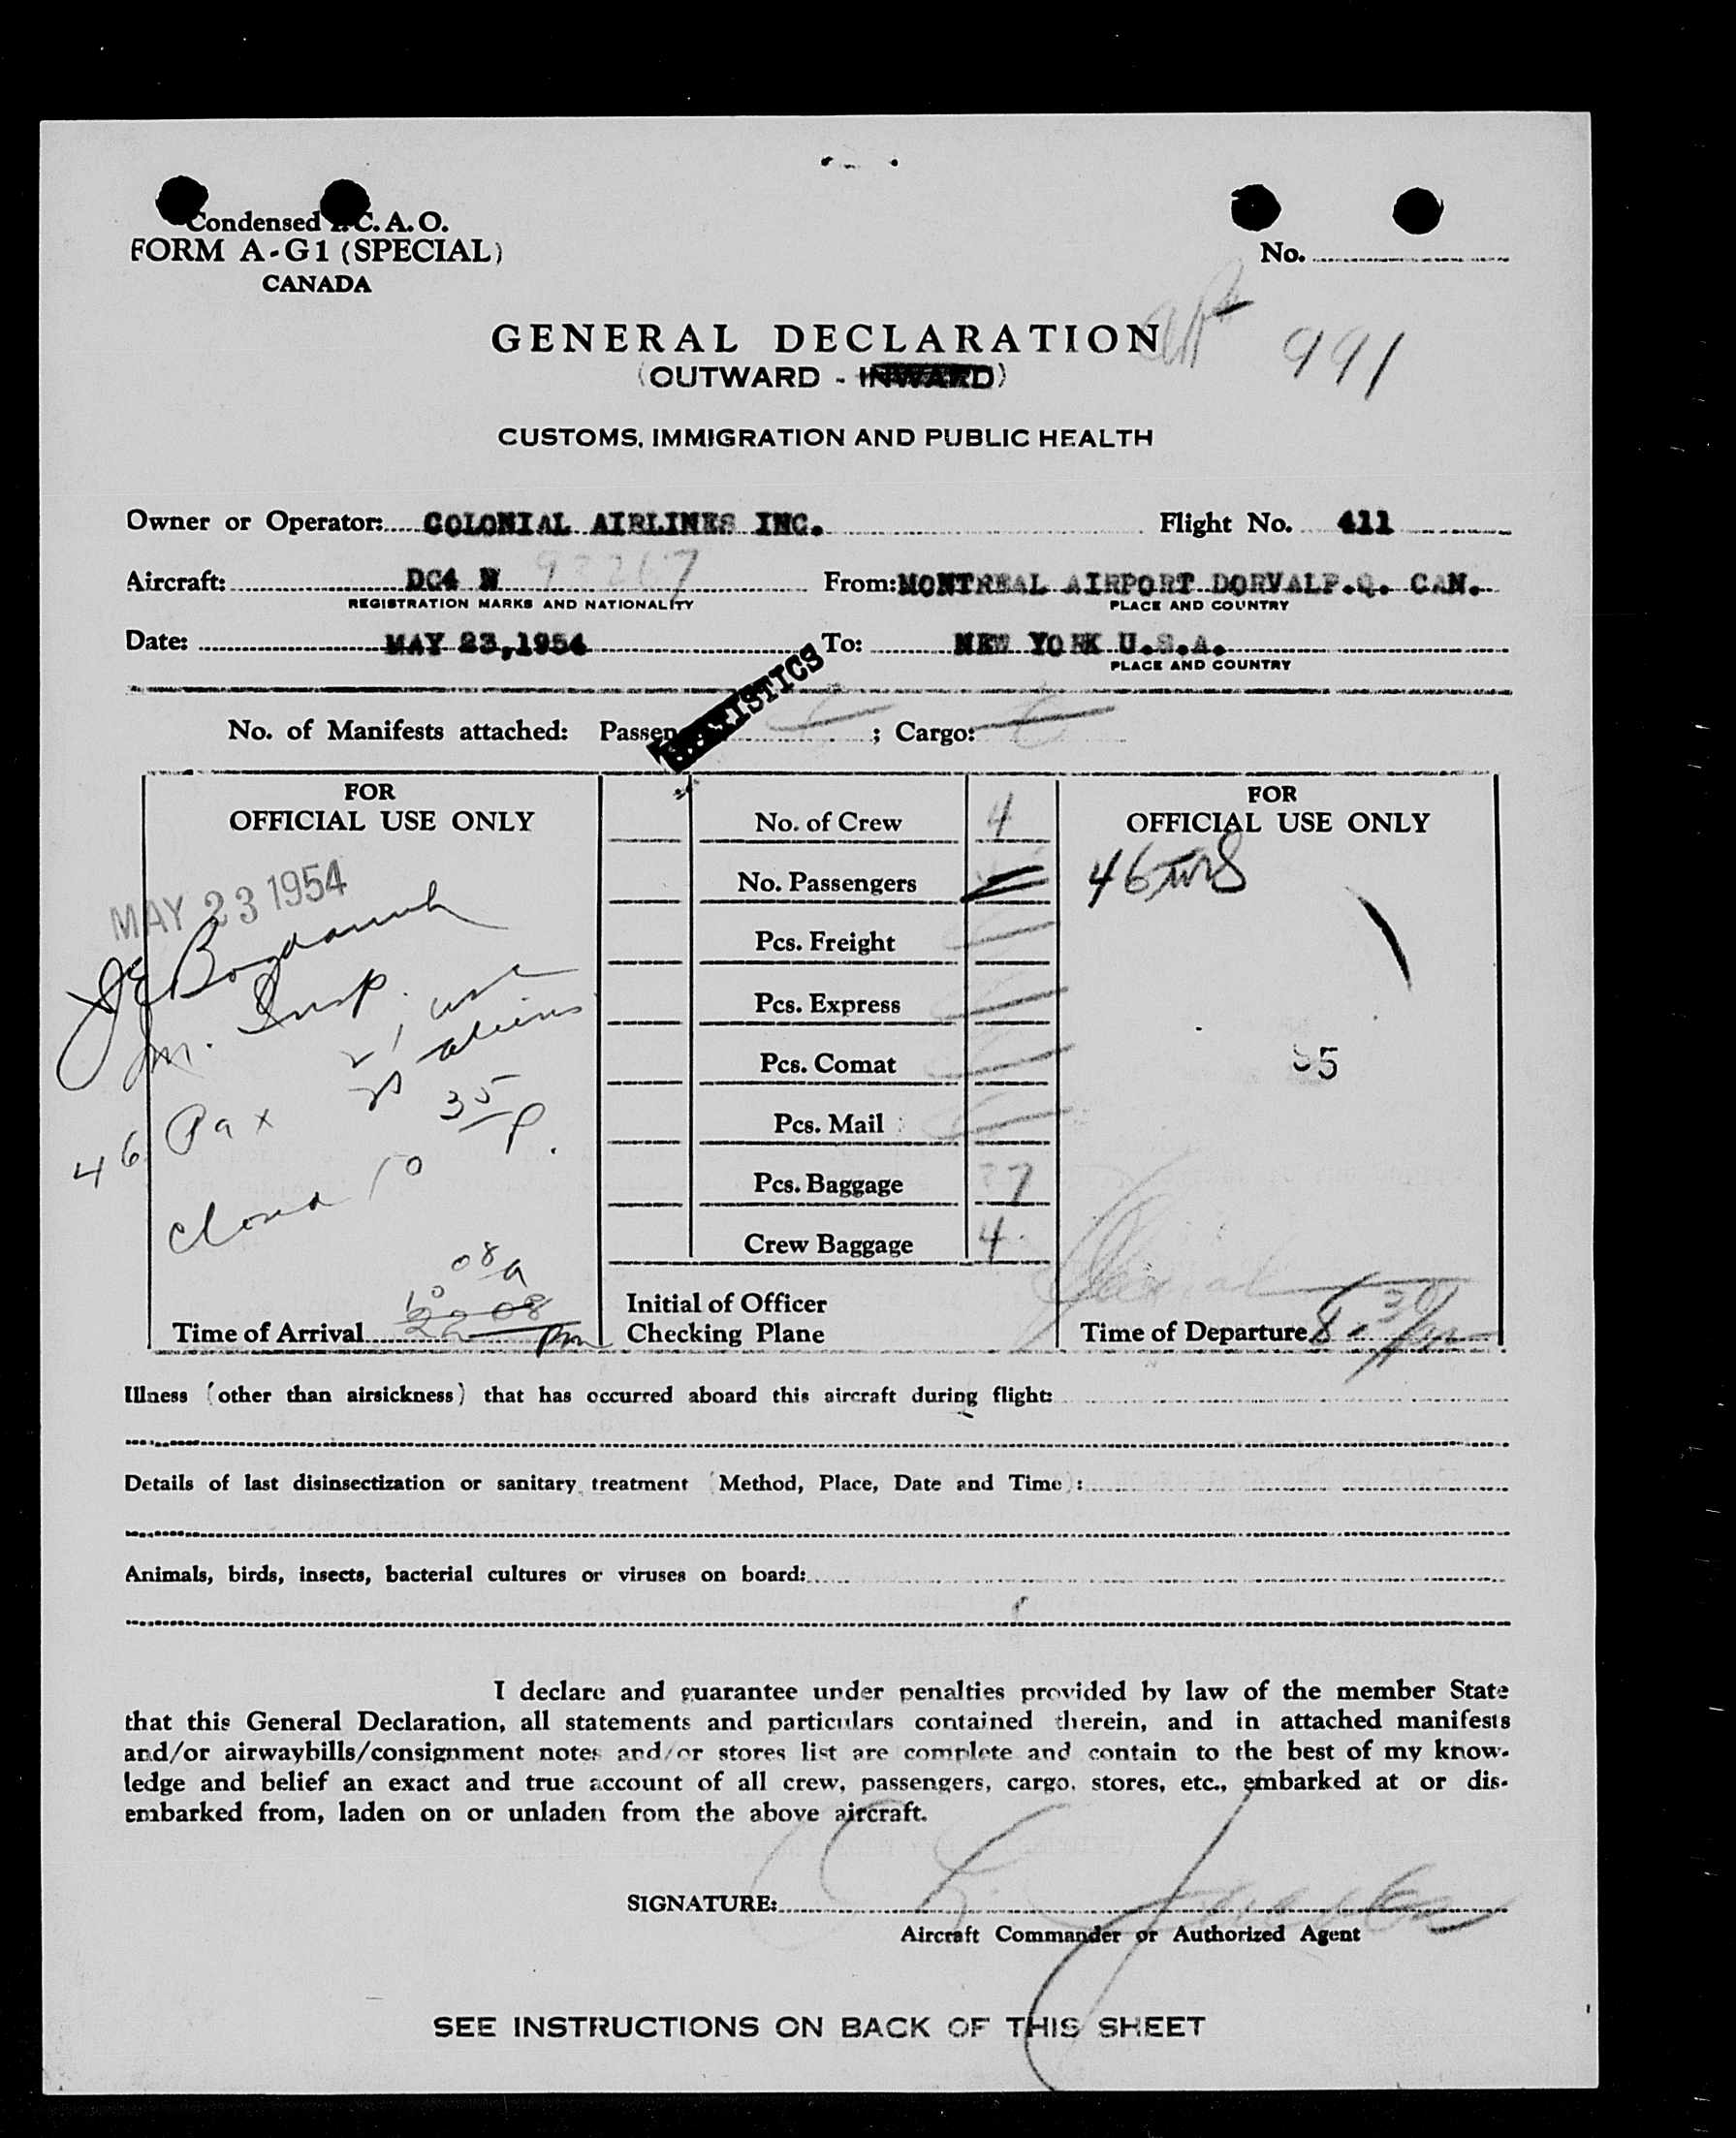 Condensed I.C.A.O.
FORM A-G1 (SPECIAL)
CANADA
No.
991
GENERAL DECLARATION
(OUTWARD - INWARD)
CUSTOMS, IMMIGRATION AND PUBLIC HEALTH
Owner or Operator: COLONIAL AIRLINES INC. Flight No. 411
Aircraft: DC4 N From: MONTREAL AIRPORT DORVAL P.Q. CAN.
REGISTRATION MARKS AND NATIONALITY PLACE AND COUNTRY
Date: MAY 23,1954 To: NEW YORK U.S.A.
PLACE AND COUNTRY
STATISTICS
No. of Manifests attached: Passen ; Cargo:
FOR
OFFICIAL USE ONLY
MAY 23 1954
Insp.
aliens
46 Pax 25
Closed 10 35 P.
10 08 a
22 08
Time of Arrival pm
No. of Crew 4
No. Passengers
Pcs. Freight
Pcs. Express
Pcs. Comat
Pcs. Mail
Pcs. Baggage
Crew Baggage 4
Initial of Officer
Checking Plane
FOR
OFFICIAL USE ONLY
46
Time of Departure 8.30
Illness (other than airsickness) that has occurred aboard this aircraft during flight:
Details of last disinsectization or sanitary treatment (Method, Place, Date and Time):
Animals, birds, insects, bacterial cultures or viruses on board:
I declare and guarantee under penalties provided by law of the member State
that this General Declaration, all statements and particulars contained therein, and in attached manifests
and/or airwaybills/consignment notes and/or stores list are complete and contain to the best of my know-
ledge and belief an exact and true account of all crew, passengers, cargo, stores, etc., embarked at or dis-
embarked from, laden on or unladen from the above aircraft.
SIGNATURE:
Aircraft Commander or Authorized Agent
SEE INSTRUCTIONS ON BACK OF THIS SHEET